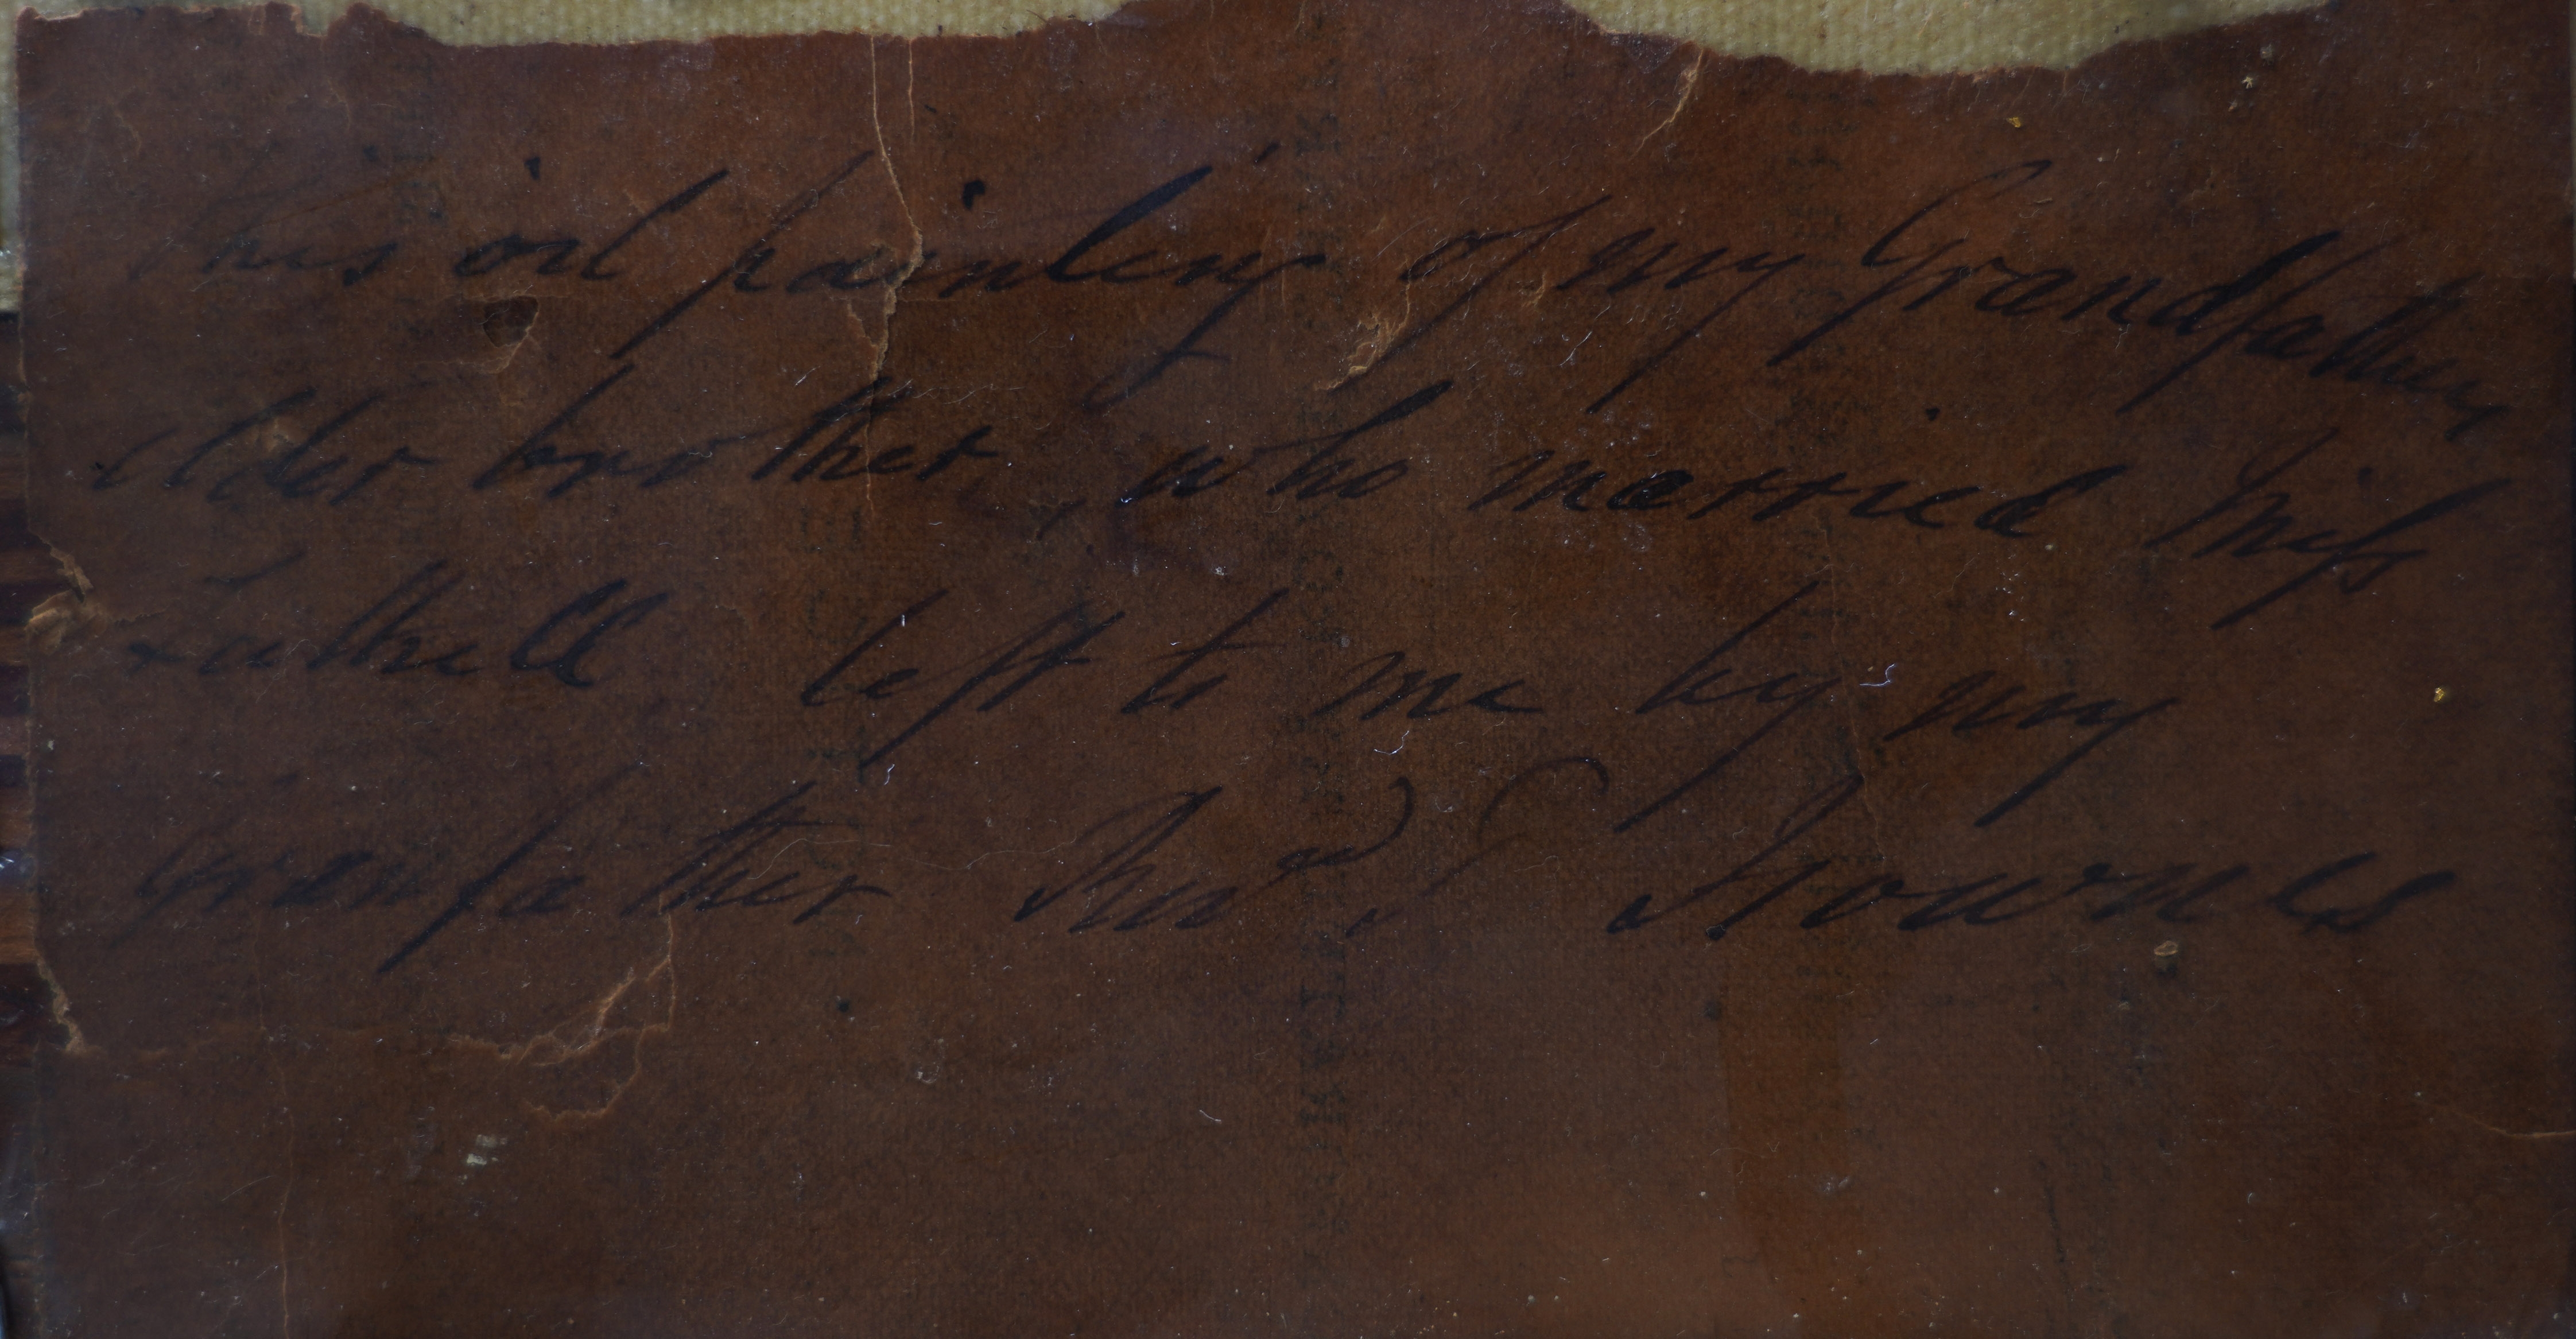 This oil painting of my Grandfathers
elder brother, who married Miss
left to me by my
Granfather Revd J Townes